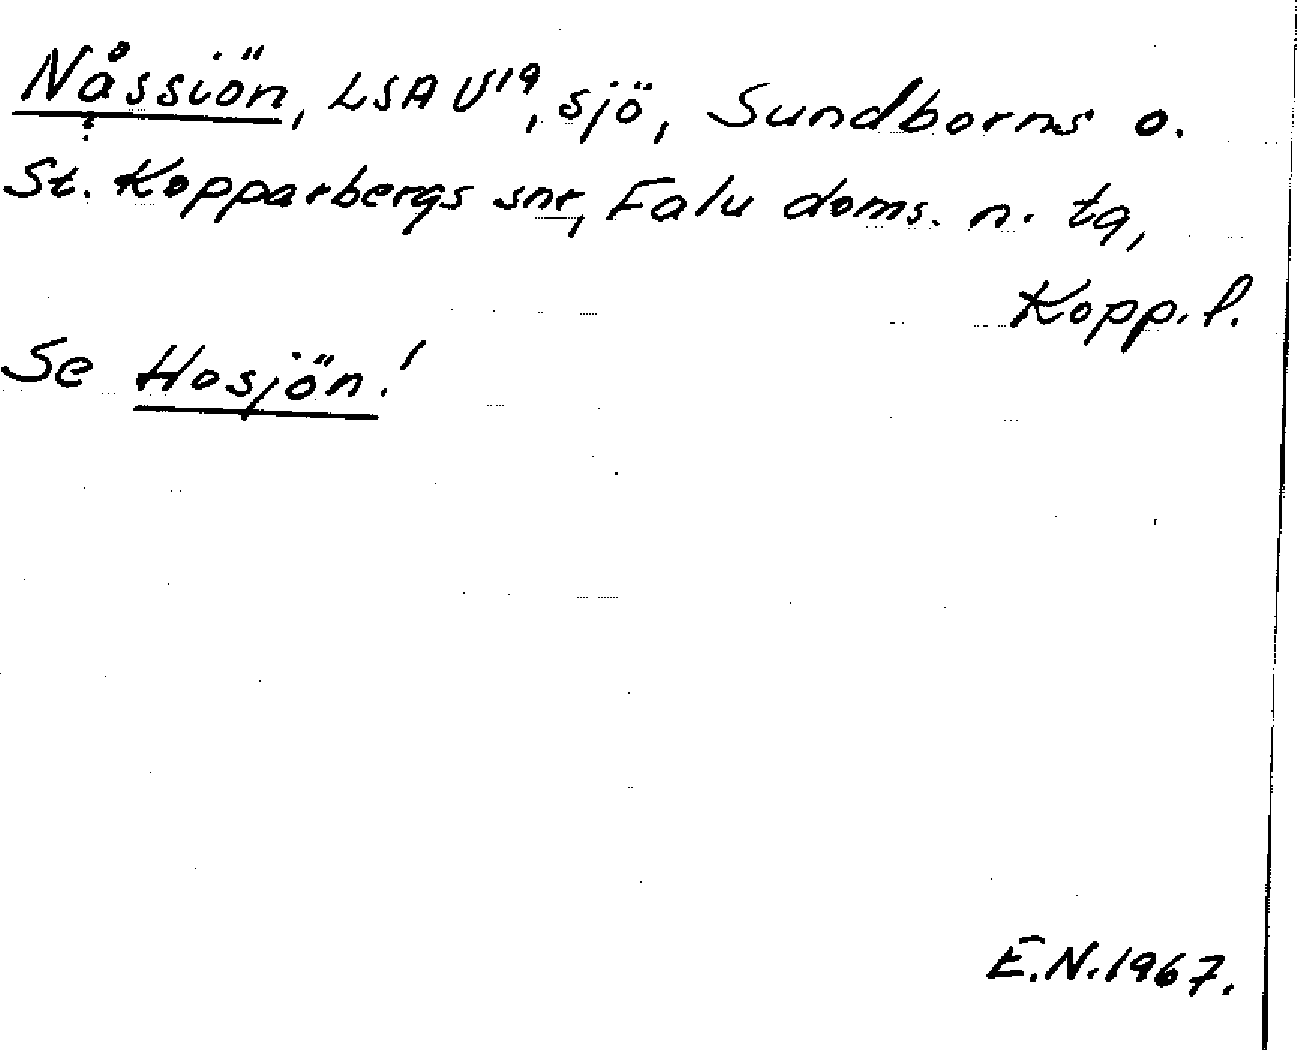 Nåssiön, LSA U19, sjö, Sundborns o.
St. Kopparbergs snr, Falu doms. n. tg,
Kopp. l.
Se Hosjön!
E.N. 1967.